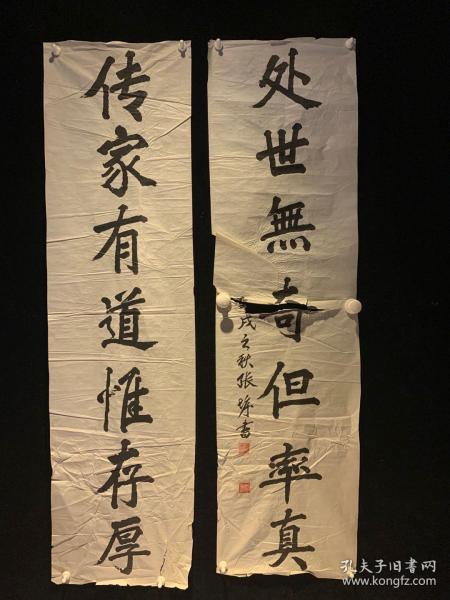 传家有道惟存厚
处世無奇但率真
戌之秋张
书
孔夫子旧书网
www.kongfz.com